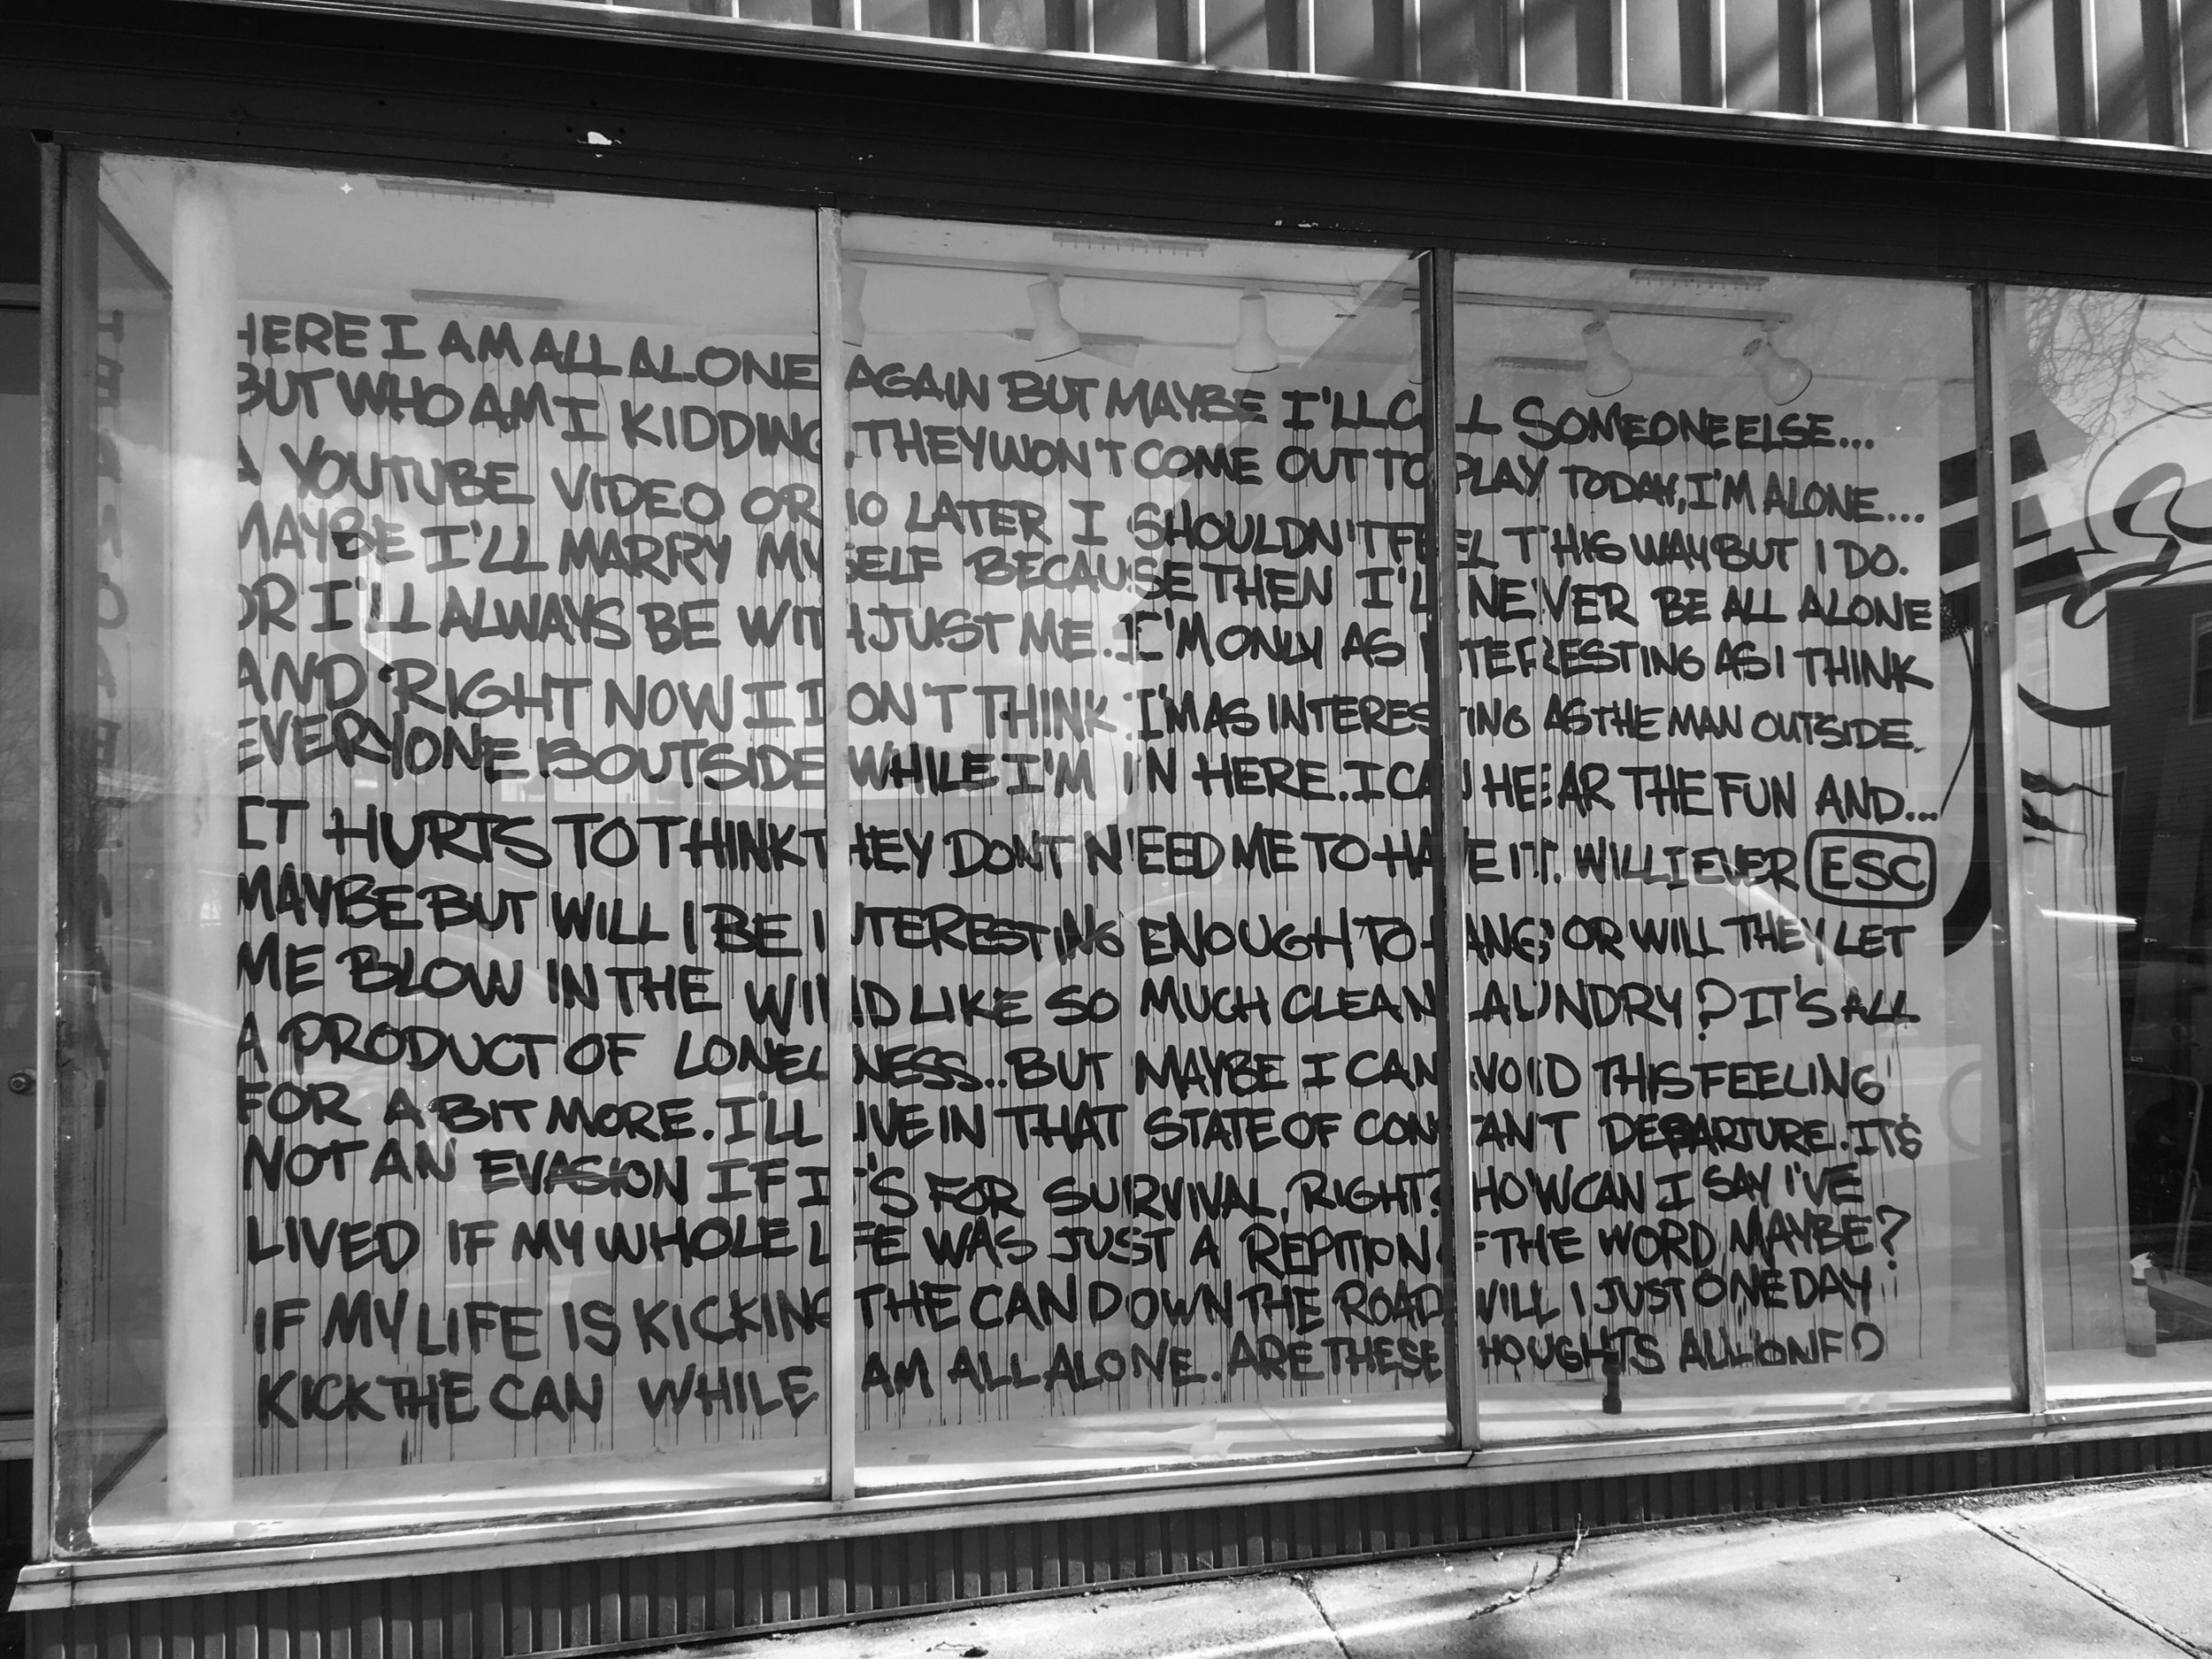 HERE I AM ALL ALONE AGAIN BUT MAYBE I'LL CALL SOMEONE ELSE...
BUT WHO AM I KIDDING, THEY WON'T COME OUT TO PLAY TODAY, I'M ALONE...
A YOUTUBE VIDEO OR 10 LATER I SHOULDN'T FEEL THIS WAY BUT I DO.
MAYBE I'LL MARRY MYSELF BECAUSE THEN I'LL NEVER BE ALL ALONE
OR I'LL ALWAYS BE WITH JUST ME. I'M ONLY AS INTERESTING AS I THINK
AND RIGHT NOW I DON'T THINK I'M AS INTERESTING AS THE MAN OUTSIDE.
EVERYONE IS OUTSIDE WHILE I'M IN HERE. I CAN HEAR THE FUN AND...
IT HURTS TO THINK THEY DONT NEED ME TO HAVE IT. WILL I EVER ESC
MAYBE BUT WILL I BE INTERESTING ENOUGH TO HANG OR WILL THEY LET
ME BLOW IN THE WIND LIKE SO MUCH CLEAN LAUNDRY? IT'S ALL
A PRODUCT OF LONELINESS... BUT MAYBE I CAN AVOID THIS FEELING
FOR A BIT MORE. I'LL LIVE IN THAT STATE OF CONSTANT DEPARTURE. IT'S
NOT AN EVASION IF IT'S FOR SURVIVAL, RIGHT? HOW CAN I SAY I'VE
LIVED IF MY WHOLE LIFE WAS JUST A REPITION OF THE WORD MAYBE?
IF MY LIFE IS KICKING THE CAN DOWN THE ROAD WILL I JUST ONE DAY
KICK THE CAN WHILE I AM ALL ALONE. ARE THESE THOUGHTS ALL